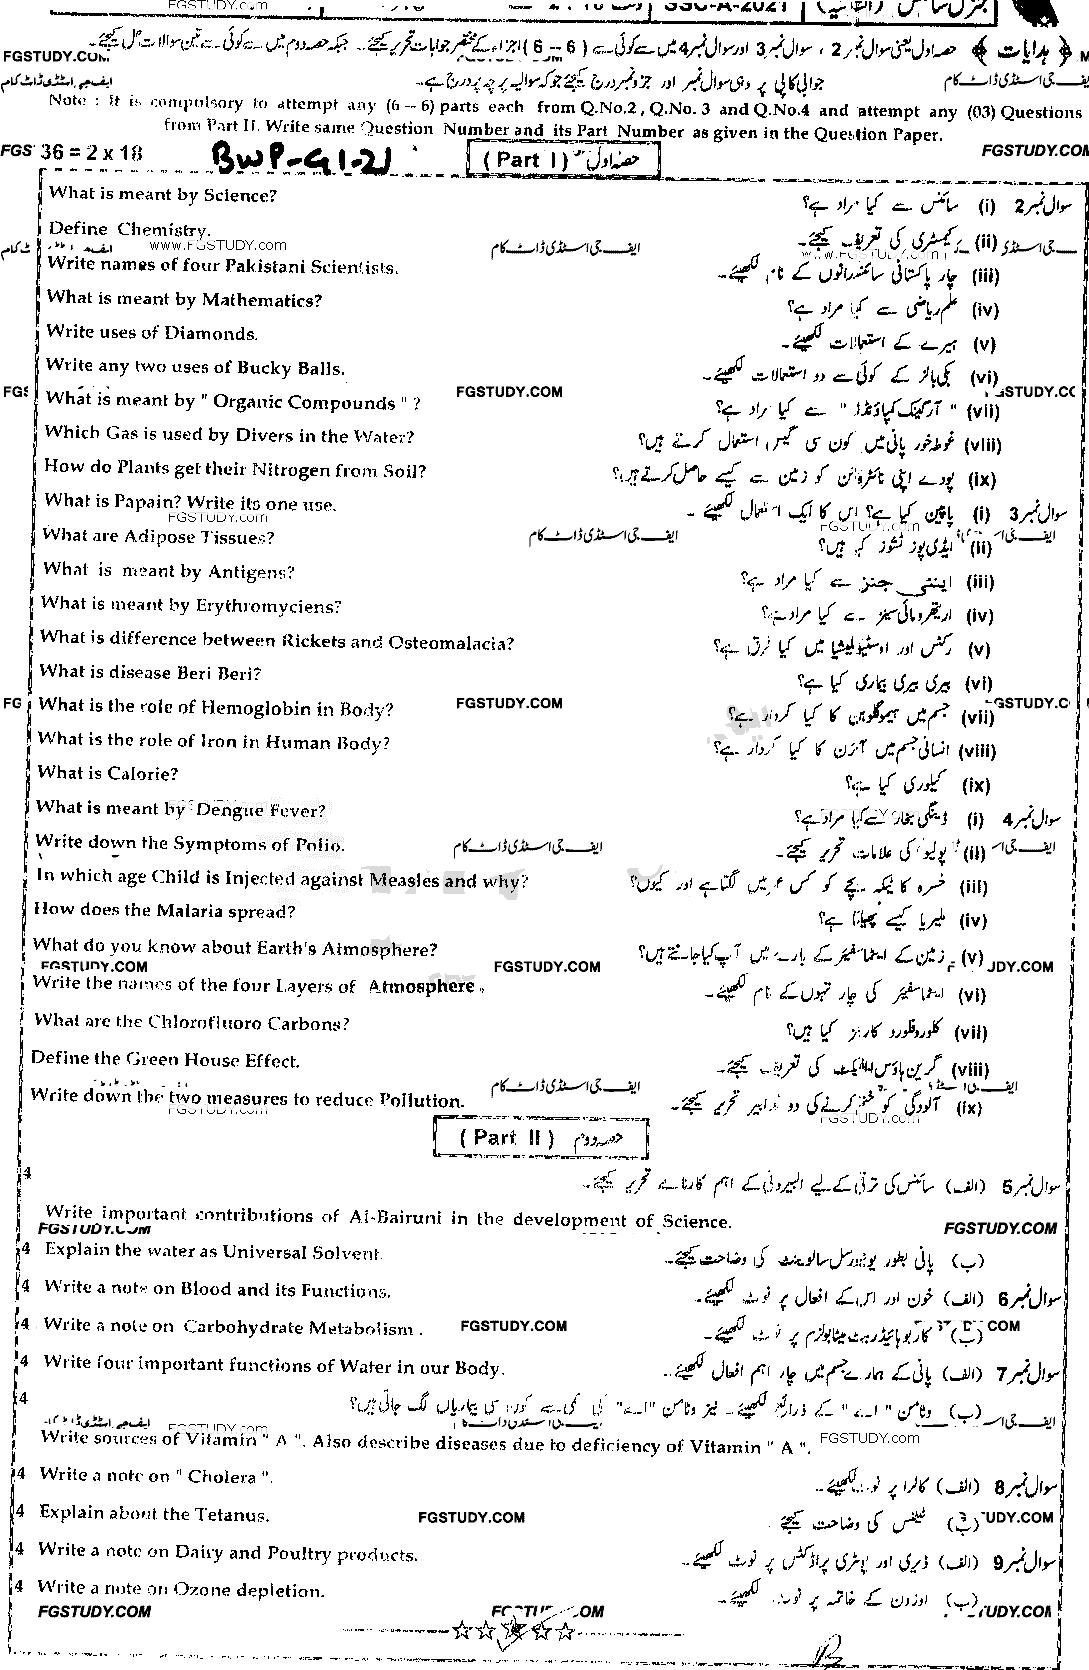 جنرل سائنس SSC-A-2021
FGSTUDY.COM ﴿ ہدایات ﴾ حصہ اول یعنی سوال نمبر 2 ، سوال نمبر 3 اور سوال نمبر 4 میں سے کوئی سے (6 – 6) اجزاء کے مختصر جوابات تحریر کیجئے۔ جبکہ حصہ دوم میں سے کوئی سے تین سوالات حل کیجئے۔
جوابی کاپی پر وہی سوال نمبر اور جزو نمبر درج کیجئے جو کہ سوالیہ پرچہ پر درج ہے۔
Note : It is compulsory to attempt any (6 – 6) parts each from Q.No.2, Q.No. 3 and Q.No.4 and attempt any (03) Questions
from Part II. Write same Question Number and its Part Number as given in the Question Paper.
36 = 2 x 18 BWP-G1-21 (Part I) حصہ اول FGSTUDY.COM
What is meant by Science? سوال نمبر 2 (i) سائنس سے کیا مراد ہے؟
Define Chemistry. (ii) کیمسٹری کی تعریف کیجئے۔
www.FGSTUDY.com ایف جی اسٹڈی ڈاٹ کام
Write names of four Pakistani Scientists. (iii) چار پاکستانی سائنسدانوں کے نام لکھیئے۔
What is meant by Mathematics? (iv) علم ریاضی سے کیا مراد ہے؟
Write uses of Diamonds. (v) ہیرے کے استعمالات لکھیئے۔
Write any two uses of Bucky Balls. (vi) بکی بالز کے کوئی سے دو استعمالات لکھیئے۔
FGSTUDY.COM
What is meant by " Organic Compounds " ? (vii) " آرگینک کمپاؤنڈز " سے کیا مراد ہے؟
Which Gas is used by Divers in the Water? (viii) غوطہ خور پانی میں کون سی گیس استعمال کرتے ہیں؟
How do Plants get their Nitrogen from Soil? (ix) پودے اپنی نائٹروجن کو زمین سے کیسے حاصل کرتے ہیں؟
What is Papain? Write its one use. سوال نمبر 3 (i) پاپین کیا ہے؟ اس کا ایک استعمال لکھیئے۔
FGSTUDY.com
What are Adipose Tissues? ایف جی اسٹڈی ڈاٹ کام (ii) ایڈی پوز ٹشوز کیا ہیں؟
What is meant by Antigens? (iii) اینٹی جنز سے کیا مراد ہے؟
What is meant by Erythromyciens? (iv) اریتھرومائی سینز سے کیا مراد ہے؟
What is difference between Rickets and Osteomalacia? (v) رکٹس اور اوسٹیوملیشیا میں کیا فرق ہے؟
What is disease Beri Beri? (vi) بیری بیری بیماری کیا ہے؟
What is the role of Hemoglobin in Body? FGSTUDY.COM (vii) جسم میں ہیموگلوبن کا کیا کردار ہے؟
What is the role of Iron in Human Body? (viii) انسانی جسم میں آئرن کا کیا کردار ہے؟
What is Calorie? (ix) کیلوری کیا ہے؟
What is meant by Dengue Fever? سوال نمبر 4 (i) ڈینگی بخار سے کیا مراد ہے؟
Write down the Symptoms of Polio. ایف جی اسٹڈی ڈاٹ کام (ii) پولیو کی علامات تحریر کیجئے۔
In which age Child is Injected against Measles and why? (iii) خسرہ کا ٹیکہ بچے کو کس عمر میں لگتا ہے اور کیوں؟
How does the Malaria spread? (iv) ملیریا کیسے پھیلتا ہے؟
What do you know about Earth's Atmosphere? (v) زمین کے ایٹماسفیئر کے بارے میں آپ کیا جانتے ہیں؟
FGSTUDY.COM FGSTUDY.COM
Write the names of the four Layers of Atmosphere. (vi) ایٹماسفیئر کی چار تہوں کے نام لکھیئے۔
What are the Chlorofluoro Carbons? (vii) کلوروفلورو کاربنز کیا ہیں؟
Define the Green House Effect. (viii) گرین ہاؤس ایفیکٹ کی تعریف کیجئے۔
ایف جی اسٹڈی ڈاٹ کام
Write down the two measures to reduce Pollution. (ix) آلودگی کو ختم کرنے کی دو تدابیر تحریر کیجئے۔
FGSTUDY.com FGSTUDY.com
(Part II) حصہ دوم
4 سوال نمبر 5 (الف) سائنس کی ترقی کے لیے البیرونی کے اہم کارنامے تحریر کیجئے۔
Write important contributions of Al-Bairuni in the development of Science.
FGSTUDY.COM FGSTUDY.COM
4 Explain the water as Universal Solvent. (ب) پانی بطور یونیورسل سالوینٹ کی وضاحت کیجئے۔
4 Write a note on Blood and its Functions. سوال نمبر 6 (الف) خون اور اس کے افعال پر نوٹ لکھیئے۔
4 Write a note on Carbohydrate Metabolism. FGSTUDY.COM (ب) کاربوہائیڈریٹ میٹابولزم پر نوٹ لکھیئے۔
4 Write four important functions of Water in our Body. سوال نمبر 7 (الف) پانی کے ہمارے جسم میں چار اہم افعال لکھیئے۔
4 (ب) وٹامن "اے" کے ذرائع لکھیئے۔ نیز وٹامن "اے" کی کمی سے کون کی بیماریاں لگ جاتی ہیں؟
FGSTUDY.com ایف جی اسٹڈی ڈاٹ کام
Write sources of Vitamin " A ". Also describe diseases due to deficiency of Vitamin " A ". FGSTUDY.com
4 Write a note on " Cholera ". سوال نمبر 8 (الف) کالرا پر نوٹ لکھیئے۔
4 Explain about the Tetanus. FGSTUDY.COM (ب) ٹیٹنس کی وضاحت کیجئے۔
4 Write a note on Dairy and Poultry products. سوال نمبر 9 (الف) ڈیری اور پولٹری پراڈکٹس پر نوٹ لکھیئے۔
4 Write a note on Ozone depletion. (ب) اوزون کے خاتمہ پر نوٹ لکھیئے۔
FGSTUDY.COM